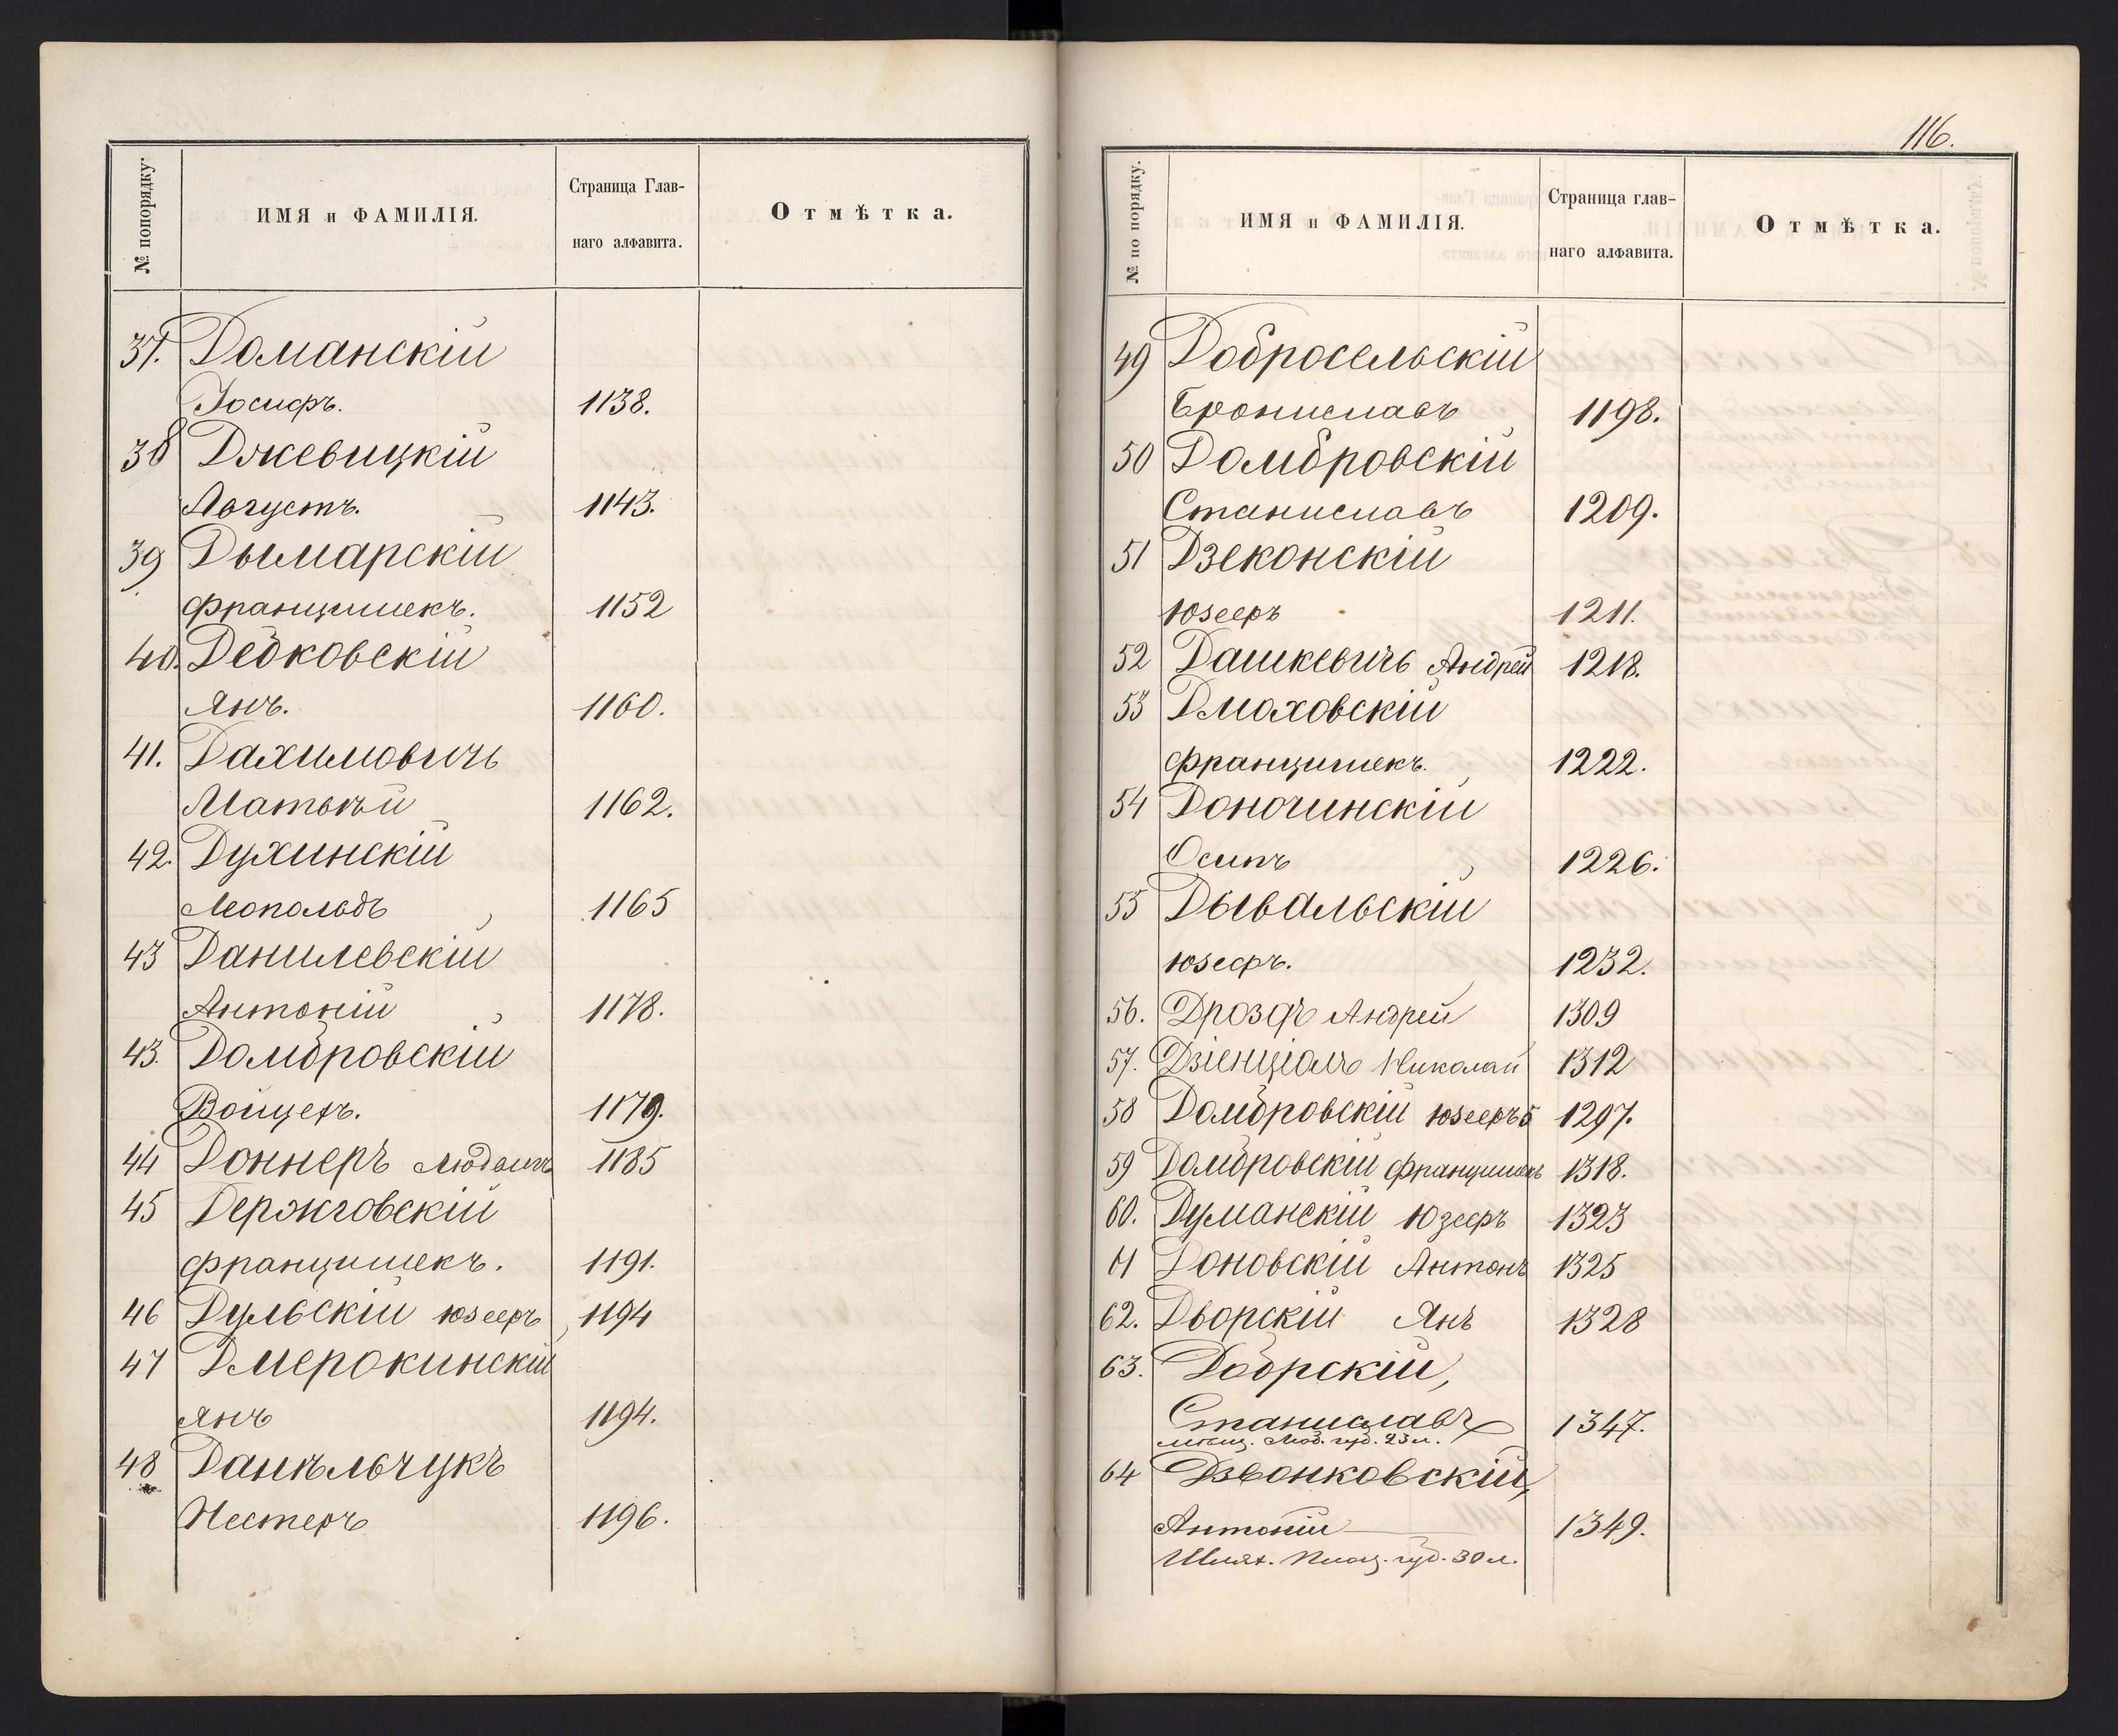 № попорядку.
ИМЯ и ФАМИЛІЯ.
Страница Глав-
наго алфавита.
Отмѣтка.
37. Доманскій
Іосифъ. 1138.
38 Джевицкій
Августъ. 1143.
39 Дымарскій
Францишекъ. 1152
40. Дедковскій
Янъ. 1160.
41. Дахимовичъ
Матвѣй 1162.
42. Духинскій
Леопольдъ 1165
43 Данилевскій
Антоній 1178.
43. Домбровскій
Войцехъ. 1179.
44 Доннеръ Людвигъ 1185
45 Держговскій
Францишекъ. 1191.
46 Дульскій Юзефъ 1194
47 Дмерокинскій
Янъ 1194.
48 Данѣльчукъ
Нестеръ 1196.
116.
№ по порядку.
ИМЯ и ФАМИЛІЯ.
Страница глав-
наго алфавита.
Отмѣтка.
49 Добросельскій
Брониславъ 1198.
50 Домбровскій
Станиславъ 1209.
51 Дзеконскій
Юзефъ 1211.
52 Дашкевичъ Андрей 1218.
53 Дмоховскій
Францишекъ. 1222.
54 Доночинскій
Осипъ 1226.
55 Дывальскій
Юзефъ. 1232.
56. Дроздъ Андрей 1309
57. Дзіенціолъ Николай 1312
58 Домбровскій Юзефъ 1297.
59 Домбровскій Францишекъ 1318.
60. Думанскій Юзефъ 1323
61 Доновскій Антонъ 1325
62. Дворскій Янъ 1328
63. Добрскій,
Станиславъ 1347.
мѣщ. Люб. губ. 23 л.
64 Дзвонковскій,
Антоній 1349.
Шлях. Плоц. губ. 30 л.